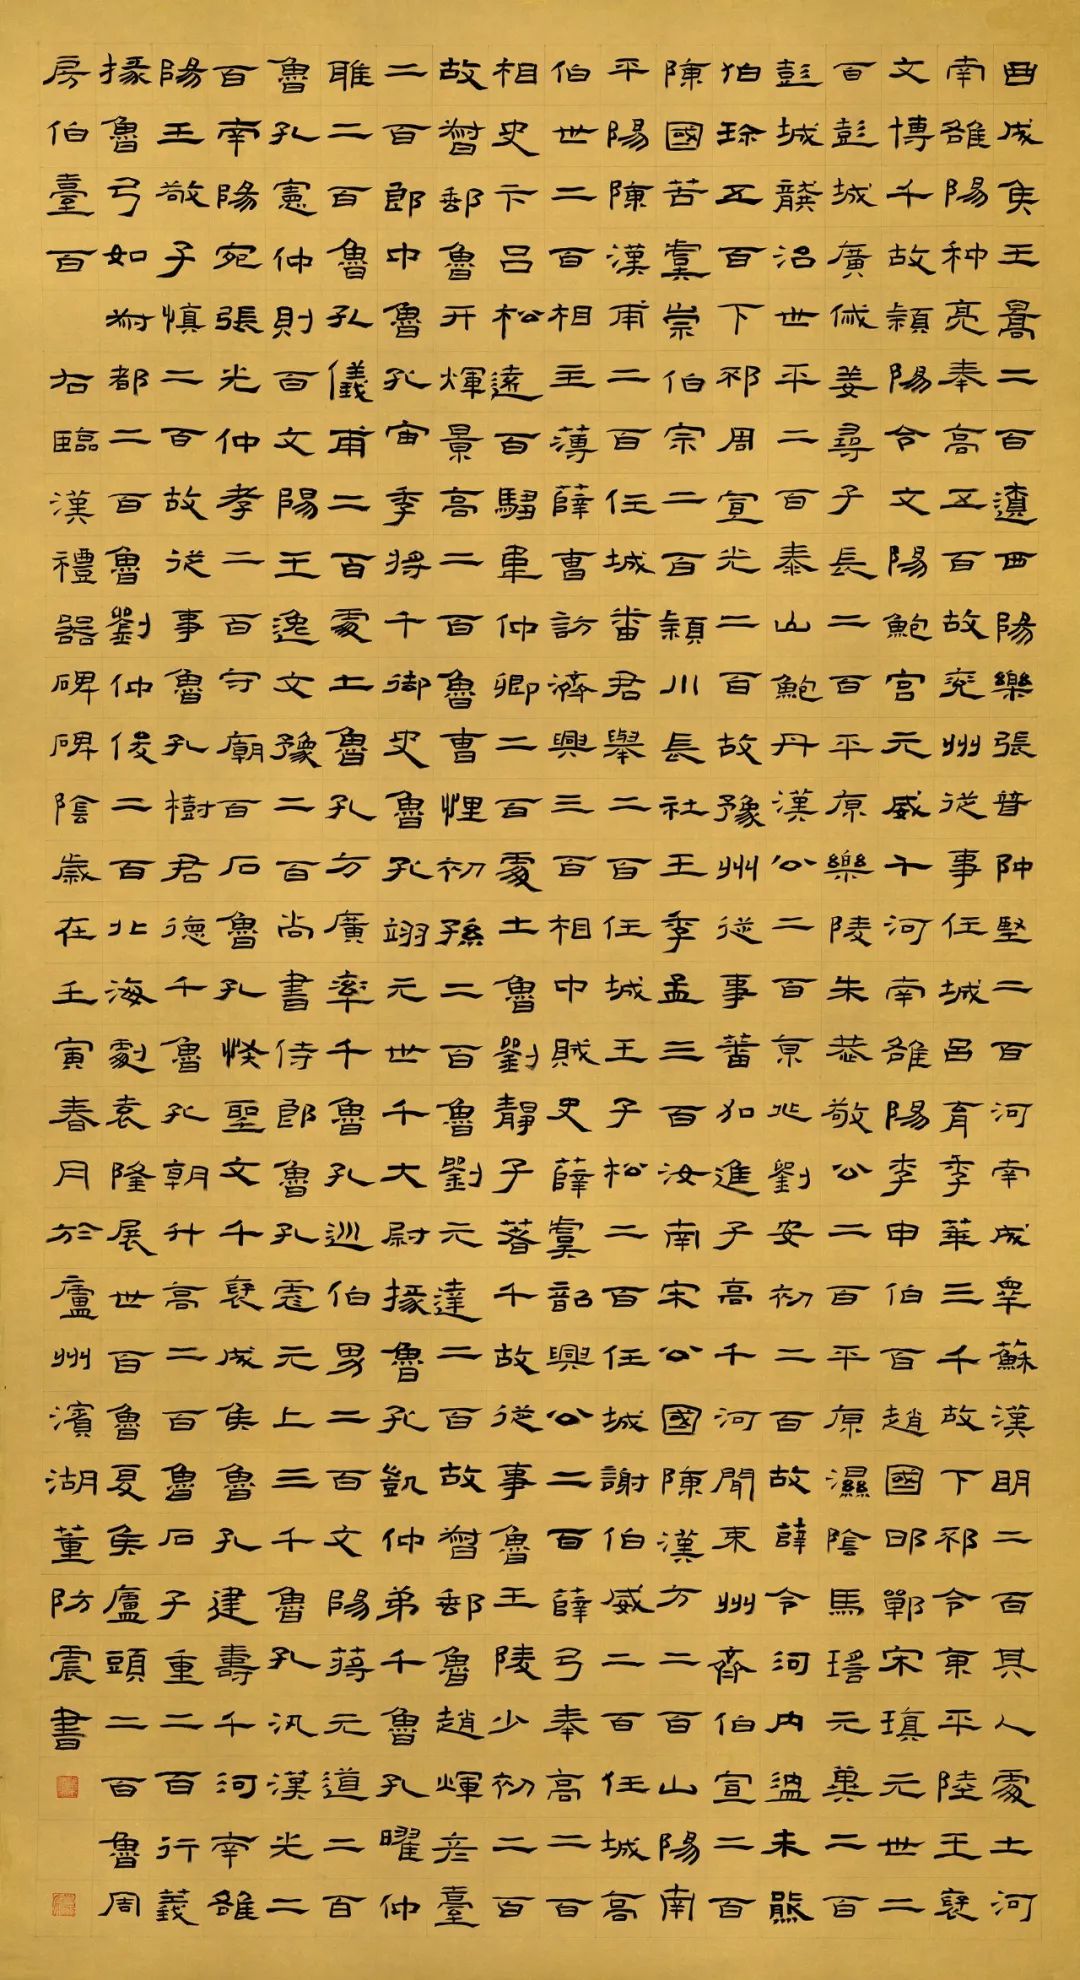 曲成侯王暠二百遼西陽樂張普仲堅二百河南成皋蘇漢明二百其人處士河
南雒陽种亮奉高五百故兗州從事任城呂育季華三千故下邳令東平陸王褒
文博千故潁陽令文陽鮑宮元威千河南雒陽李申伯百趙國邯鄲宋瑱元世二
百彭城廣戚姜尋子長二百平原樂陵朱恭敬公二百平原濕陰馬瑤元冀二百
彭城龔治世平二百泰山鮑丹漢公二百京兆劉安初二百故薛令河內溫朱熊
伯珍五百下邳周宣光二百故豫州從事蕃加進子高千河間束州齊伯宣二百
陳國苦虞崇伯宗二百潁川長社王季孟三百汝南宋公國陳漢方二百山陽南
平陽陳漢甫二百任城番君舉二百任城王子松二百任城謝伯威二百任城高
伯世二百相主薄薛曹訪濟興三百相中賊史薛虞韶興公二百薛弓奉高二百
相史卞呂松遠百騶韋仲卿二百處士魯劉靜子著千故從事魯王陵少初二百
故督郵魯开煇景高二百魯曹悝初孫二百魯劉元達二百故督郵魯趙煇彥臺
二百郎中魯孔宙季將千御史魯孔翊元世千大尉掾魯孔凱仲弟千魯孔曜仲
雅二百魯孔儀甫二百處士魯孔方廣率千魯孔巡伯男二百文陽蔣元道二百
魯孔憲仲則百文陽王逸文豫二百尚書侍郎魯孔彪元上三千魯孔汎漢光二
百南陽宛張光仲孝二百守廟百石魯孔恢聖文千褒成侯魯孔建壽千河南雒
陽王敬子慎二百故從事魯孔樹君德千魯孔朝升高二百魯石子重二百行義
掾魯弓如叔都二百魯劉仲俊二百北海劇袁隆展世百魯夏侯廬頭二百魯周
房伯臺百 右臨漢禮器碑碑陰歲在壬寅春月於廬州濱湖董防震書